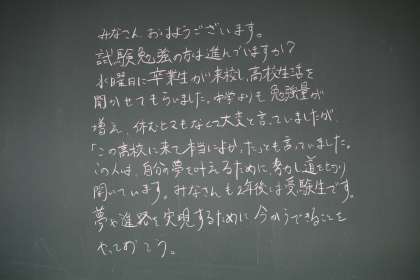 みなさん おはようございます。
試験勉強の方は進んでいますか？
水曜日に卒業生が来校し、高校生活を
聞かせてもらいました。中学よりも勉強量が
増え、休むヒマもなくて大変と言っていましたが、
「この高校に来て本当によかった」とも言っていました。
この人は、自分の夢を叶えるために努力し道を切り
開いています。みなさんも2年後は受験生です。
夢や進路を実現するために今からできることを
やっておこう。